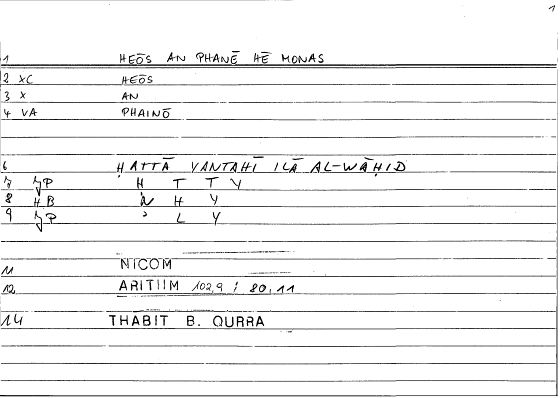 1
1 HEŌS AN PHANĒ HĒ MONAS
2 XC HEŌS
3 X AN
4 VA PHAINŌ
6 ḤATTĀ YANTAHĪ ILĀ AL-WĀḤID
7 JP Ḥ T T Y
8 HB N H Y
9 JP ʾ L Y
11 NICOM
12 ARITIIM 102,9 ; 80,11
14 THABIT B. QURRA